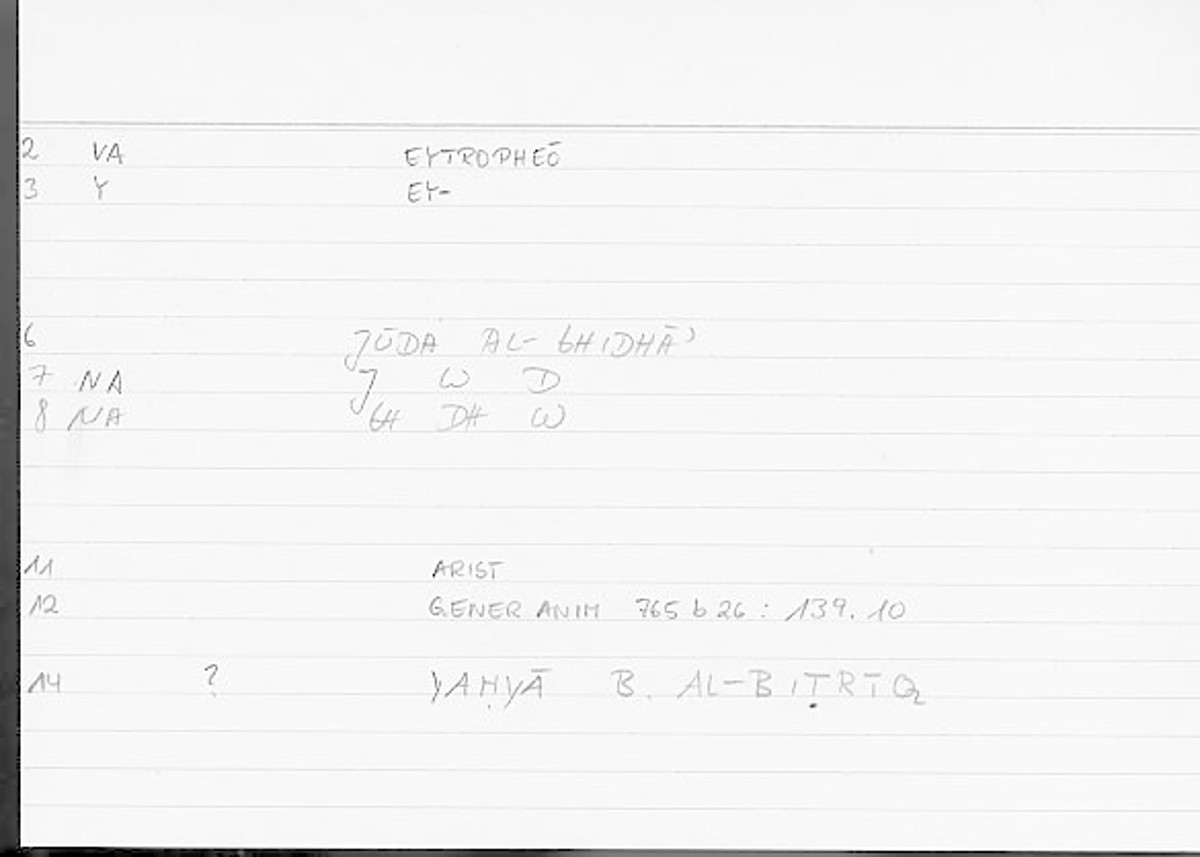 2 VA EYTROPHEŌ
3 Y EY-
6 JŪDA AL-GHIDHĀʾ
7 NA J W D
8 NA GH DH W
11 ARIST
12 GENER ANIM 765 b 26 : 139.10
14 ? YAḤYĀ B. AL-BIṬRĪQ